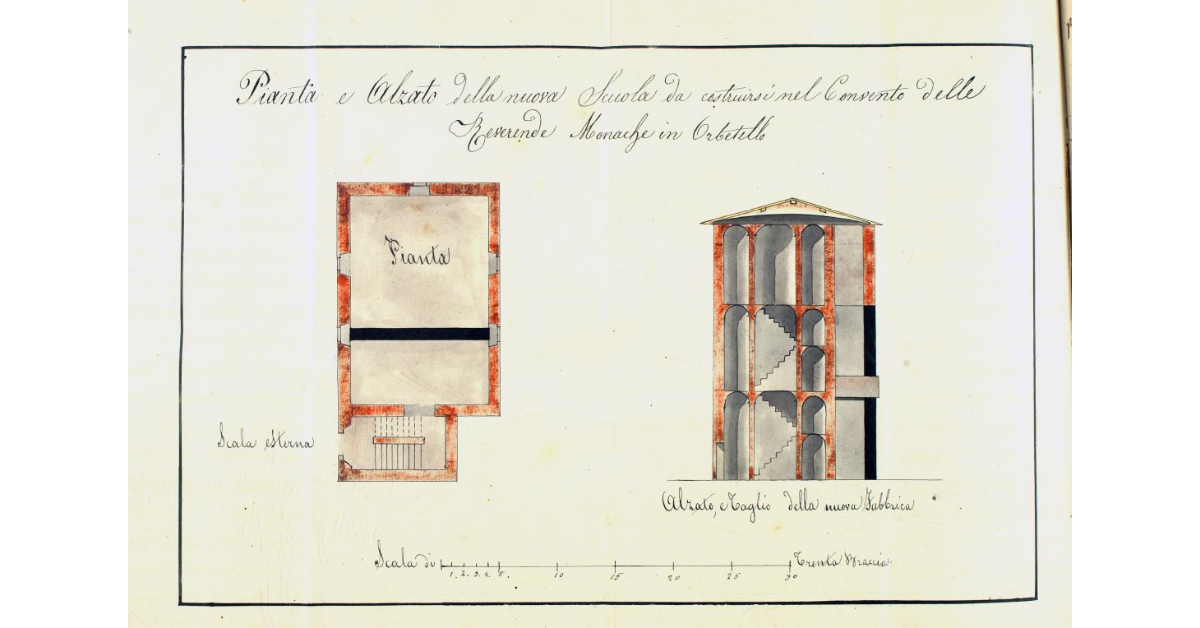 Pianta e Alzato della nuova Scuola da costruirsi nel Convento delle
Reverende Monache in Orbetello
Pianta
Scala esterna
Alzato, e Taglio della nuova Fabbrica
Scala di
1. 2. 3. 4. 5. 10 15 20 25 30
Trenta Braccia